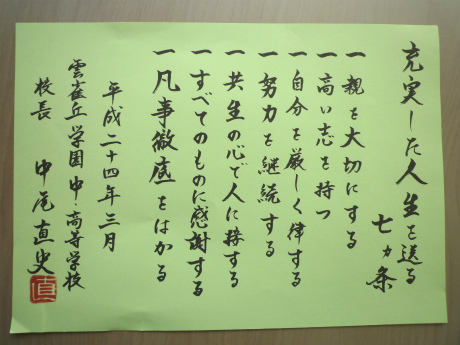 充実した人生を送る
七カ条
一 親を大切にする
一 高い志を持つ
一 自分を厳しく律する
一 努力を継続する
一 共生の心で人に接する
一 すべてのものに感謝する
一 凡事徹底をはかる
平成二十四年三月
雲雀丘学園中・高等学校
校長 中尾直史
直